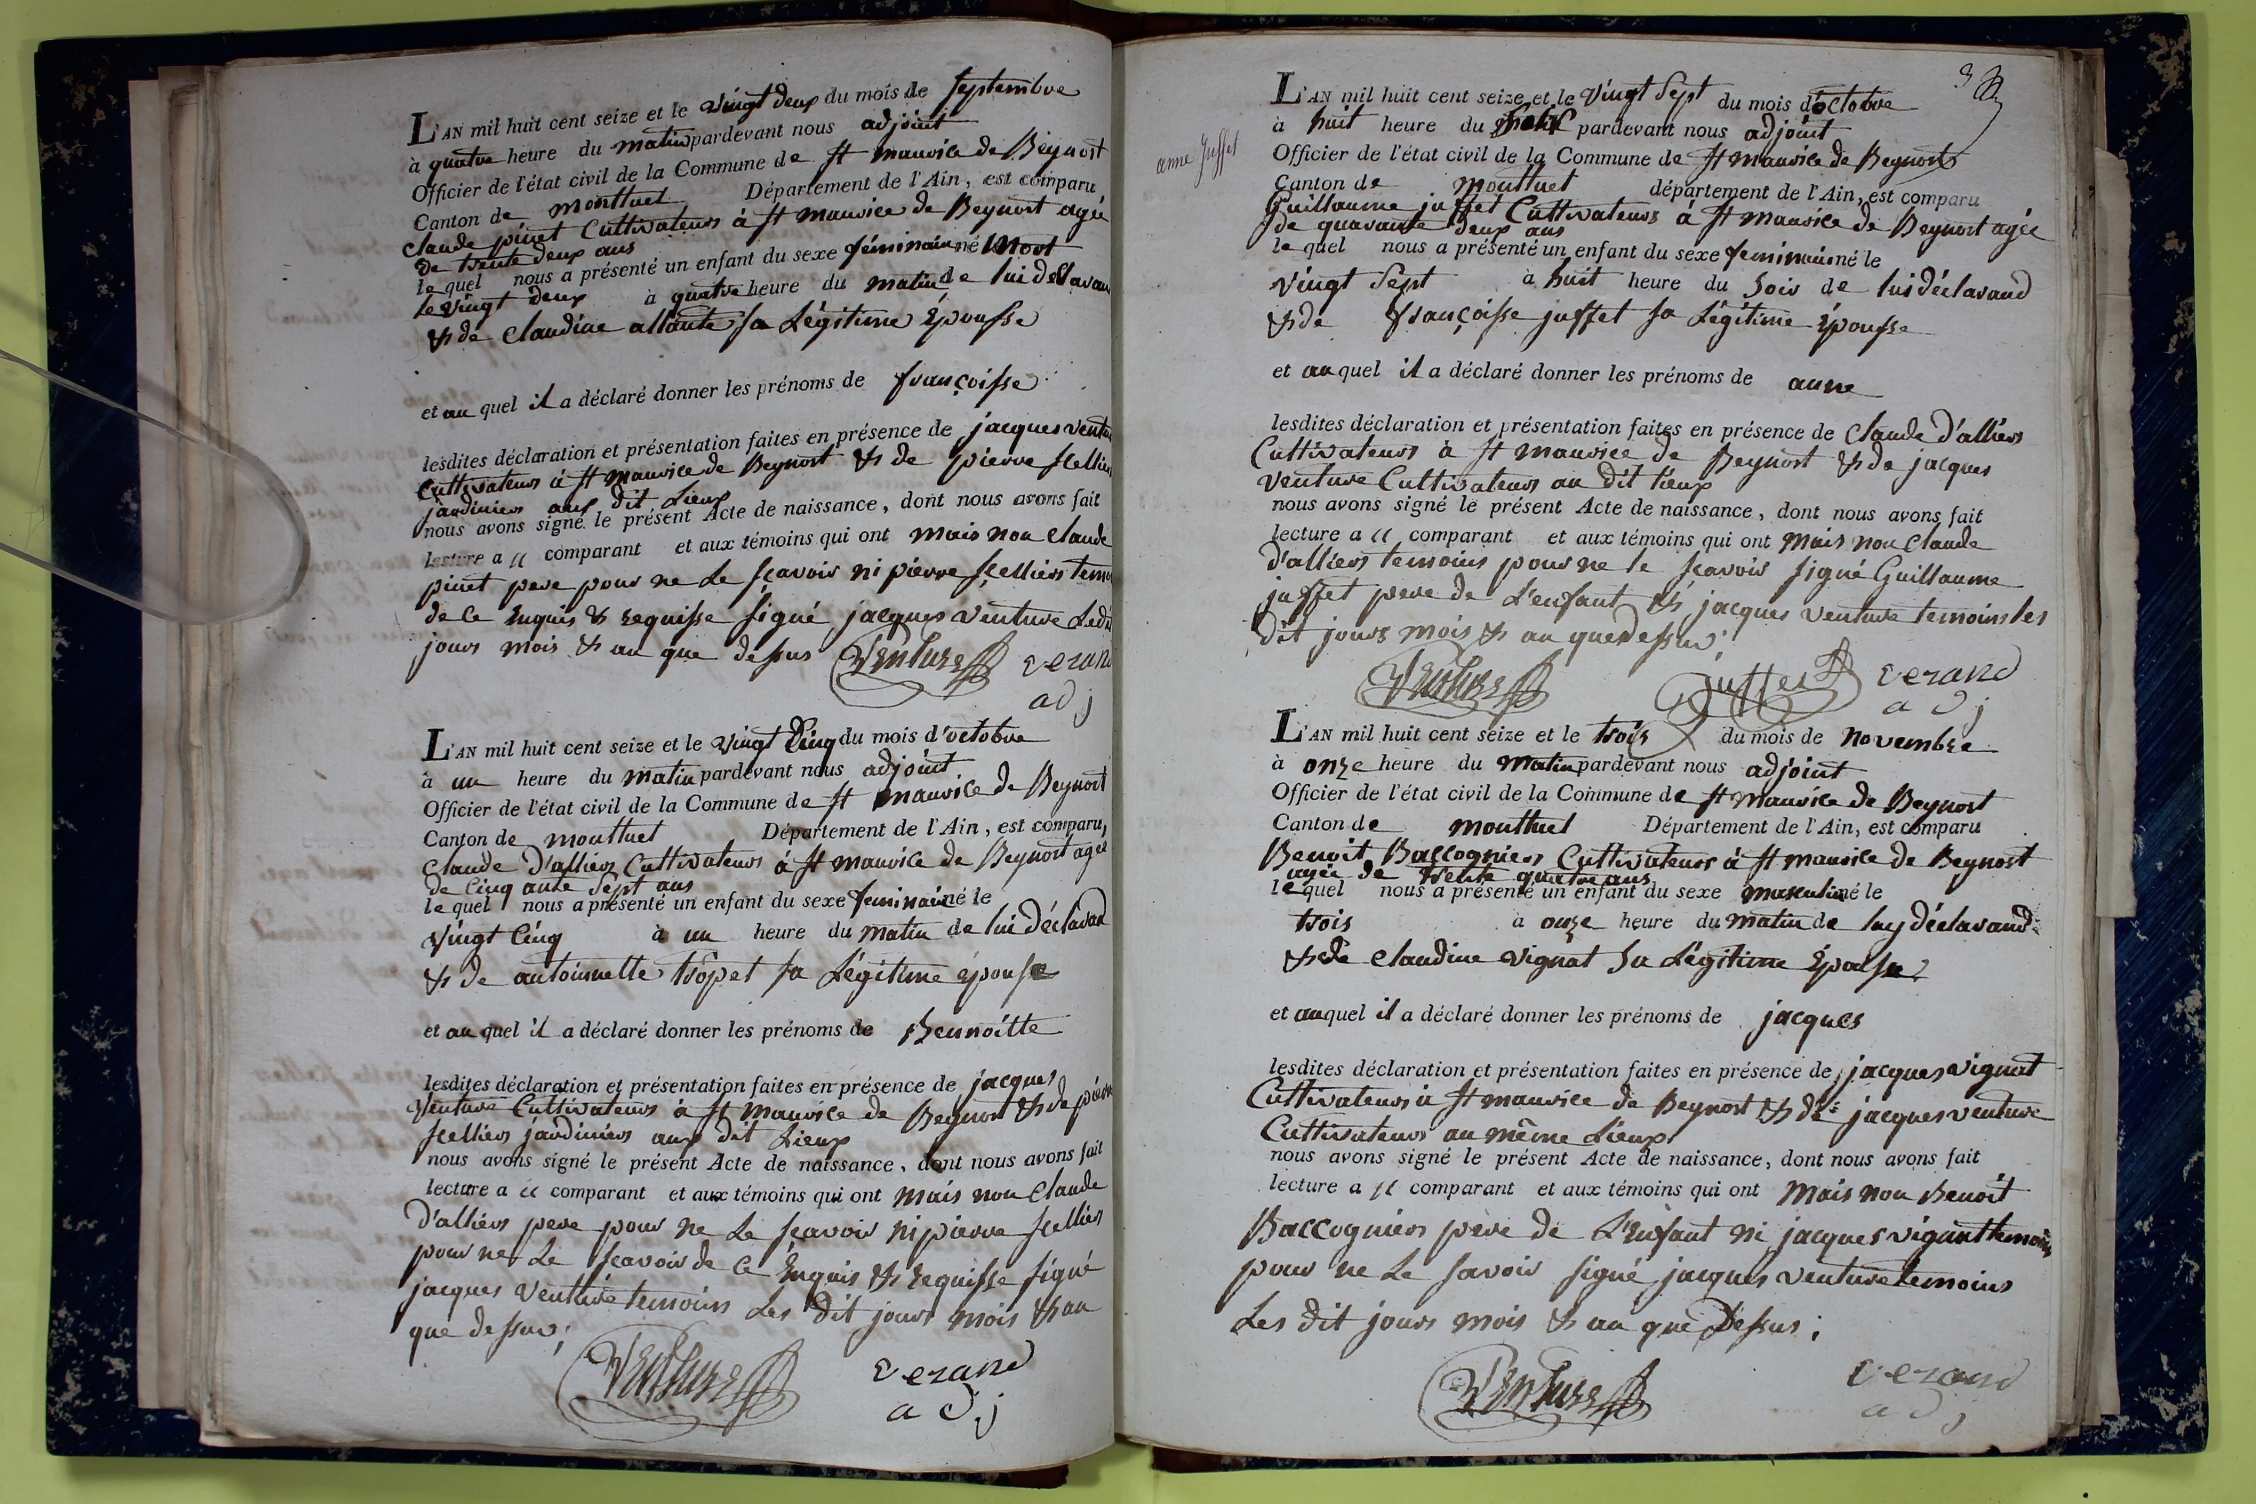 L'AN mil huit cent seize et le vingt deux du mois de septembre
à quatre heure du matin pardevant nous adjoint
Officier de l'état civil de la Commune de St maurice de Beynost
Canton de montluel Département de l'Ain, est comparu
claude pinet Cultivateurs à St maurice de Beynost agée
de trente deux ans
le quel nous a présenté un enfant du sexe féminain né mort
le vingt deux à quatre heure du matin de lui déclarau
& de claudine allante sa Légitime Épousse
et au quel il a déclaré donner les prénoms de françoisse
lesdites déclaration et présentation faites en présence de jacques ventu
Cultivateurs à St maurice de Beynost & de pierre scelliers
jardiniers aux dit Lieux
nous avons signé le présent Acte de naissance, dont nous avons fait
lecture a u comparant et aux témoins qui ont mais non claude
pinet pere pour ne le sçavoir ni pierre scelliers temo
de ce Enquis & requisse signé jacques venture Ledi
jours mois & an que dessus venture verand
adj
L'AN mil huit cent seize et le vingt Cinq du mois d'octobre
à un heure du matin pardevant nous adjoint
Officier de l'état civil de la Commune de St maurice de Beynost
Canton de montluel Département de l'Ain, est comparu,
claude d'alliers Cultivateurs à St maurice de Beynost agée
de Cinq ante sept ans
le quel nous a présenté un enfant du sexe feminain né le
vingt Cinq à un heure du matin de lui déclarand
& de antoinnette tropet sa Légitime épousse
et au quel il a déclaré donner les prénoms de Bennoitte
lesdites déclaration et présentation faites en présence de jacques
venture Cultivateurs à St maurice de Beynost & de pierre
scelliers jardiniers aux dit Lieux
nous avons signé le présent Acte de naissance, dont nous avons fait
lecture a u comparant et aux témoins qui ont mais non claude
d'alliers pere pour ne le sçavoir ni pierre scelliers
pour ne le sçavoir de ce Enquis & requisse signé
jacques venture temoins Les dit jours mois & an
que dessus;
venture verand
adj
L'AN mil huit cent seize et le vingt sept du mois d'octobre
à huit heure du pardevant nous adjoint
anne juffet
Officier de l'état civil de la Commune de St maurice de Beynost
Canton de montluel département de l'Ain, est comparu
Guillaume juffet Cultivateurs à St maurice de Beynost agée
de quarante deux ans
le quel nous a présenté un enfant du sexe feminain né le
vingt sept à huit heure du soir de lui déclarand
& de françoisse juffet sa Légitime épousse
et au quel il a déclaré donner les prénoms de anne
lesdites déclaration et présentation faites en présence de claude d'alliers
Cultivateurs à St maurice de Beynost & de jacques
venture Cultivateurs au dit lieux
nous avons signé le présent Acte de naissance, dont nous avons fait
lecture a u comparant et aux témoins qui ont mais non claude
d'alliers temoins pour ne le sçavoir signé Guillaume
juffet pere de L'enfant & jacques venture temoins les
dit jours mois & an que dessus;
venture juffet verand
adj
L'AN mil huit cent seize et le trois du mois de novembre
à onze heure du matin pardevant nous adjoint
Officier de l'état civil de la Commune de St maurice de Beynost
Canton de montluel Département de l'Ain, est comparu
Benoit Baccogniers Cultivateurs à St maurice de Beynost
agée de trente quatre ans
le quel nous a présenté un enfant du sexe masculin né le
trois à onze heure du matin de luy déclarand
& de claudine vignat sa Légitime Épousse
et au quel il a déclaré donner les prénoms de jacques
lesdites déclaration et présentation faites en présence de jacques vignat
Cultivateurs à St maurice de Beynost & de jacques venture
Cultivateurs au même Lieux
nous avons signé le présent Acte de naissance, dont nous avons fait
lecture a u comparant et aux témoins qui ont mais non Benoit
Baccogniers père de L'enfant ni jacques vignat temoins
pour ne le savoir signé jacques venture temoins
Les dit jours mois & an que Dessus;
venture verand
adj